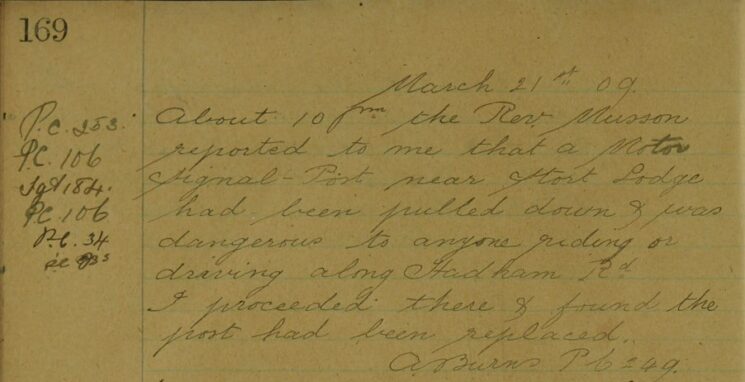 169
March 21st 09.
About 10 pm the Rev Musson
reported to me that a Motor
Signal-Post near Stort Lodge
had been pulled down & was
dangerous to anyone riding or
driving along Hadham Rd
I proceeded there & found the
post had been replaced.
A Burns P.C 249.
P.C. 253.
P.C. 106
Sgt 184.
P.C. 106
P.C. 34